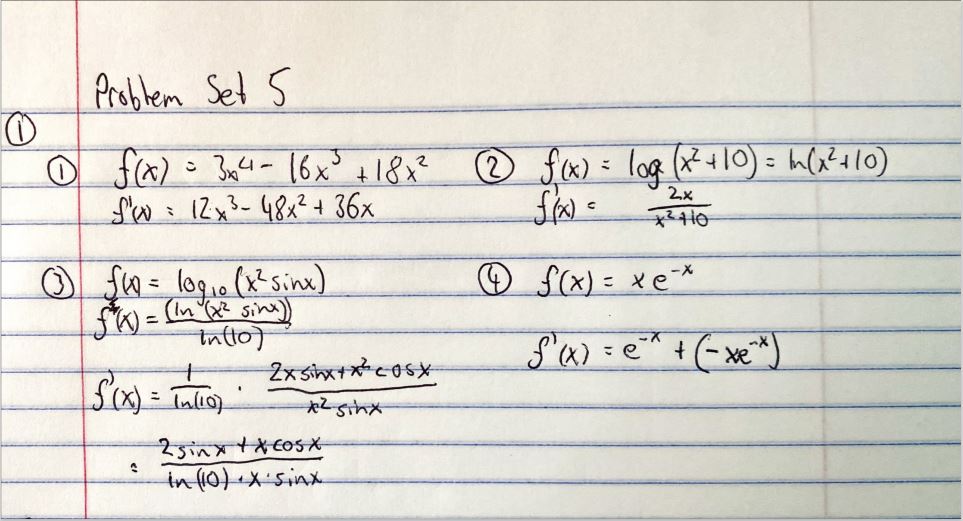 Problem Set 5
①
① f(x) = 3x⁴ - 16x³ + 18x²
f'(x) = 12x³ - 48x² + 36x
② f(x) = log(x²+10) = ln(x²+10)
f'(x) = 2x / x²+10
③ f(x) = log₁₀(x² sinx)
f(x) = (ln(x² sinx)) / ln(10)
f'(x) = 1 / ln(10) · 2x sinx + x² cosx / x² sinx
= 2 sinx + x cosx / ln(10) · x · sinx
④ f(x) = xe⁻ˣ
f'(x) = e⁻ˣ + (-xe⁻ˣ)